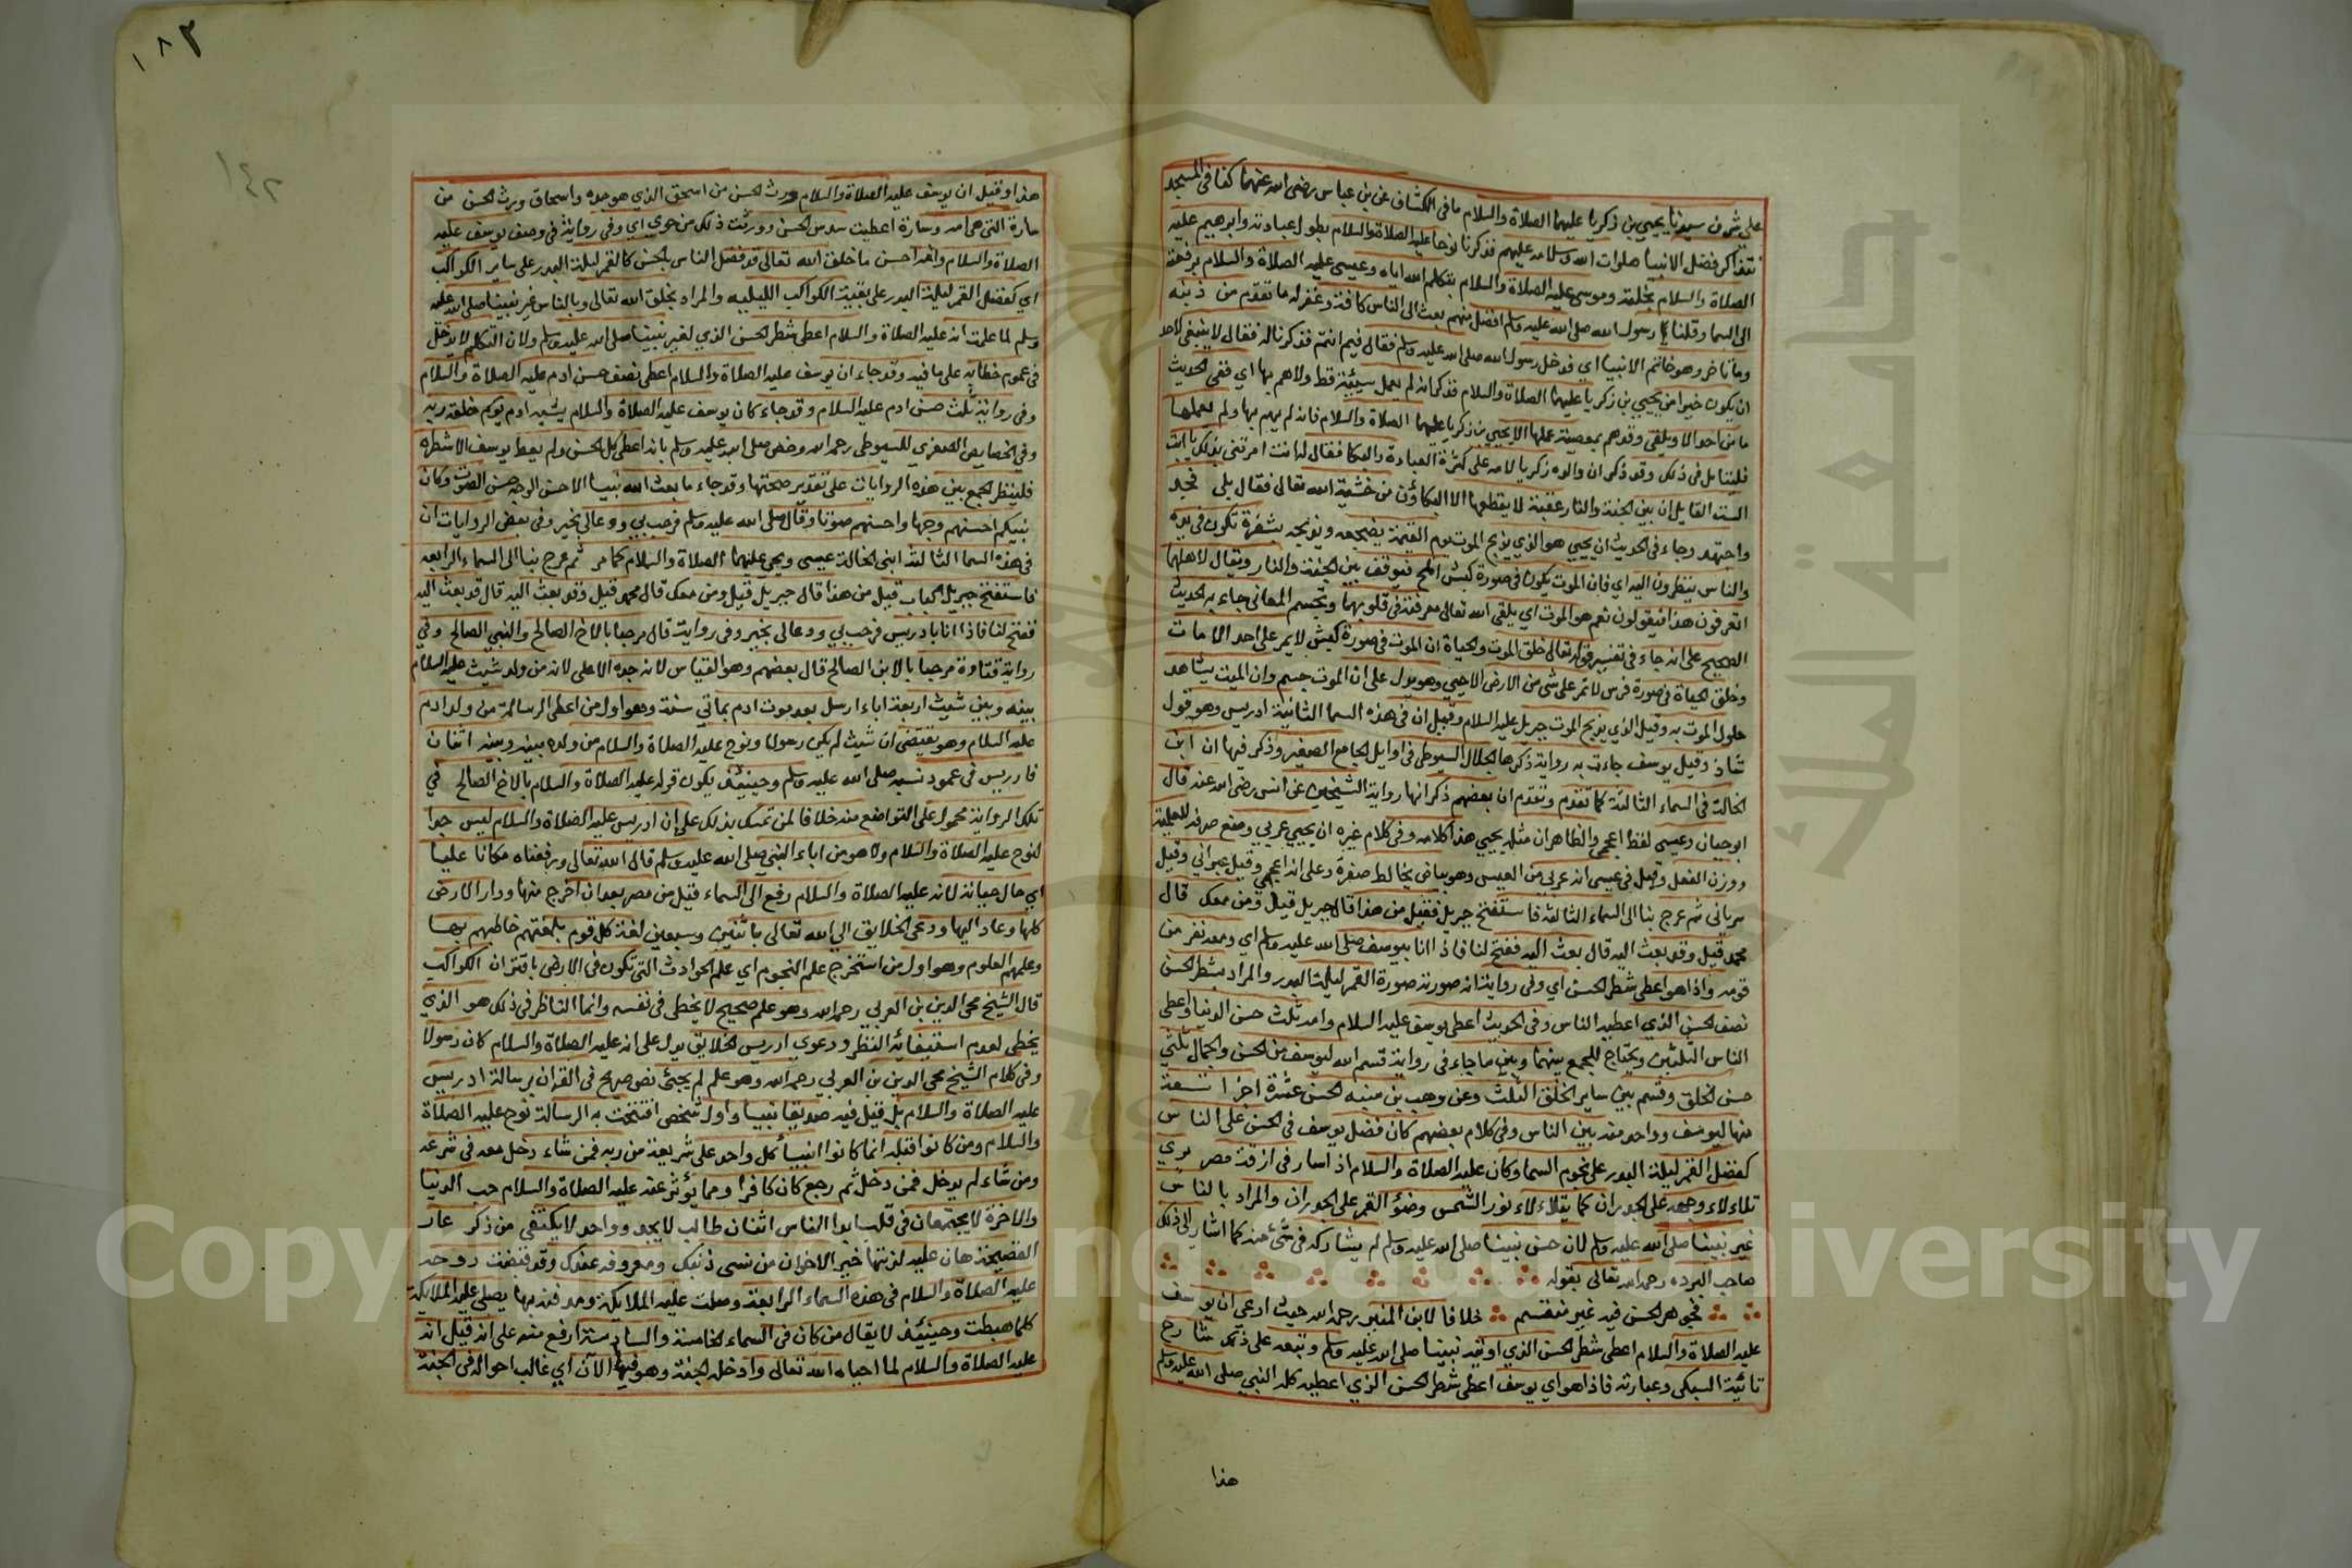 على شرف سيدنا يحيي بن زكريا عليهما الصلاة والسلام ما في الكشاف عن بن عباس رضى الله عنهما كنا في المسجد
نتذاكر فضل الانبيا صلوات الله وسلامه عليهم فذكرنا نوحا عليه الصلاة والسلام بطول عبادته وابرهيم عليه
الصلاة والسلام بخلته وموسى عليه الصلاة والسلام بتكلم الله اياه وعيسى عليه الصلاة والسلام برفعه
الى السما وقلنا رسول الله صلى الله عليه وسلم افضل منهم بعث الى الناس كافة وغفر له ما تقدم من ذنبه
وما تاخر وهو خاتم الانبيا اي فدخل رسول الله صلى الله عليه وسلم فقال فيم انتم فذكرنا له فقال لا ينبغي لاحد
ان يكون خيرا من يحيي بن زكريا عليهما الصلاة والسلام فذكر انه لم يعمل سيئة قط ولا هم بها اي ففي الحديث
ما من احد الا ويلقى وقد هم بمعصية عملها الا يحيي بن زكريا عليهما الصلاة والسلام فانه لم يهم بها ولم يعملها
فليتامل في ذلك وقد ذكر ان والده زكريا لامه على كثرة العبادة والبكا فقال له انت امرتني بذلك يا ابت
الست القايل ان بين الجنة والنار عقبة لا يقطعها الا البكاؤن من خشية الله تعالى فقال بلى فجد
واجتهد وجاء في الحديث ان يحيي هو الذي يذبح الموت يوم القيمة يضجعه ويذبحه بشفرة تكون في يده
والناس ينظرون اليه اي فان الموت يكون في صورة كبش املح فيوقف بين الجنة والنار ويقال لاهلهما
اتعرفون هذا فيقولون نعم هو الموت اي يلقى الله تعالى معرفته في قلوبهما وتجسم المعاني جاء به الحديث
الصحيح على انه جاء في تفسير قوله تعالى خلق الموت والحياة ان الموت في صورة كبش لا يمر على احد الا مات
وخلق الحياة في صورة فرس لا تمر على شى من الارض الا حيي وهو يدل على ان الموت جسم وان الميت يشاهد
حلول الموت به وقيل الذي يذبح الموت جبريل عليه السلام وقيل ان في هذه السما الثانية ادريس وهو قول
شاذ وقيل يوسف جاءت به رواية ذكرها الجلال السيوطي في اوايل الجامع الصغير وذكر فيها ان ابن
الخالة في السماء الثالثة كما تقدم وتقدم ان بعضهم ذكر انها رواية الشيخين عن انس رضى الله عنه قال
ابوحيان وعيسى لفظ اعجمي والظاهر ان مثله يحيي هذا كلامه وفي كلام غيره ان يحيي عربي ومنع صرفه للعلمية
ووزن الفعل وقيل في عيسى انه عربي من العيس وهو بياض يخالط صفرة وعلى انه اعجمي وقيل عبراني وقيل
سرياني ثم عرج بنا الى السماء الثالثة فاستفتح جبريل فقيل من هذا قال جبريل قيل ومن معك قال
محمد قيل وقد بعث اليه قال بعث اليه ففتح لنا فاذا انا بيوسف صلى الله عليه وسلم اي ومعه نفر من
قومه واذا هو اعطى شطر الحسن اي وفي رواية انه صورته صورة القمر ليلة البدر والمراد بشطر الحسن
نصف الحسن الذي اعطيه الناس وفي الحديث اعطى يوسف عليه السلام وامه ثلث حسن الدنيا واعطى
الناس الثلثين ويحتاج للجمع بينهما وبين ما جاء في رواية قسم الله ليوسف من الحسن والجمال ثلثي
حسن الخلق وقسم بين ساير الخلق الثلث وعن وهب بن منبه الحسن عشرة اجزا تسعة
منها ليوسف وواحد منه بين الناس وفي كلام بعضهم كان فضل يوسف في الحسن على الناس
كفضل القمر ليلة البدر على نجوم السما وكان عليه الصلاة والسلام اذا سار في ازقة مصر يري
تلاءلاء وجهه على الجدران كما يتلاءلاء نور الشمس وضؤ القمر على الجدران والمراد بالناس
غير نبينا صلى الله عليه وسلم لان حسن نبينا صلى الله عليه وسلم لم يشاركه في شئ منه كما اشار الى ذلك
صاحب البرده رحمه الله تعالى بقوله
فجوهر الحسن فيه غير منقسم خلافا لابن المنير رحمه الله حيث ادعى ان يوسف
عليه الصلاة والسلام اعطى شطر الحسن الذي اوتيه نبينا صلى الله عليه وسلم وتبعه على ذلك شارح
تائية السبكى وعبارته فاذا هو اي يوسف اعطى شطر الحسن الذي اعطيه كله النبي صلى الله عليه وسلم
هذا
١٨٢
١٤٢
هذا وقيل ان يوسف عليه الصلاة والسلام ورث الحسن من اسحق الذي هو جده واسحاق ورث الحسن من
سارة التي هى امه وسارة اعطيت سدس الحسن وورثت ذلك من حوى اي وفي رواية في وصف يوسف عليه
الصلاة والسلام وانه احسن ما خلق الله تعالى قد فضل الناس بالحسن كالقمر ليلة البدر على ساير الكواكب
اي كفضل القمر ليلة البدر على بقية الكواكب الليليه والمراد بخلق الله تعالى وبالناس غير نبينا صلى الله عليه
وسلم لما علمت انه عليه الصلاة والسلام اعطى شطر الحسن الذي لغير نبينا صلى الله عليه وسلم ولان المتكلم لا يدخل
في عموم خطابه على ما فيه وقد جاء ان يوسف عليه الصلاة والسلام اعطى نصف حسن ادم عليه الصلاة والسلام
وفي رواية ثلث حسن ادم عليه السلام وقد جاء كان يوسف عليه الصلاة والسلام يشبه ادم يوم خلقه ربه
وفي الخصايص الصغري للسيوطي رحمه الله وخص صلى الله عليه وسلم بانه اعطى كل الحسن ولم يعط يوسف الا شطره
فلينظر الجمع بين هذه الروايات على تقدير صحتها وقد جاء ما بعث الله نبيا الا حسن الوجه حسن الصوت وكان
نبيكم احسنهم وجها واحسنهم صوتا وقال صلى الله عليه وسلم فرحب بي ودعا لي بخير وفي بعض الروايات ان
في هذه السما الثالثة ابني الخالة عيسى ويحي عليهما الصلاة والسلام كما مر ثم عرج بنا الى السماء الرابعه
فاستفتح جبريل الباب قيل من هذا قال جبريل قيل ومن معك قال محمد قيل وقد بعث اليه قال قد بعث اليه
ففتح لنا فاذا انا بادريس فرحب بي ودعا لي بخير وفي رواية قال مرحبا بالاخ الصالح والنبي الصالح وفي
رواية قتادة مرحبا بالابن الصالح قال بعضهم وهو القياس لانه جده الاعلى لانه من ولد شيث عليه السلام
بينه وبين شيث اربعة اباء ارسل بعد موت ادم بماتي سنة وهو اول من اعطى الرسالة من ولد ادم
عليه السلام وهو يقتضى ان شيث لم يكن رسولا ونوح عليه الصلاة والسلام من ولده بينه وبينه اثنان
فادريس في عمود نسبه صلى الله عليه وسلم وحينئذ يكون قوله عليه الصلاة والسلام بالاخ الصالح في
تلك الرواية محمول على التواضع منه خلافا لمن تمسك بذلك على ان ادريس عليه الصلاة والسلام ليس جدا
لنوح عليه الصلاة والسلام ولا هو من اباء النبي صلى الله عليه وسلم قال الله تعالى ورفعناه مكانا عليا
اي حال حياته لانه عليه الصلاة والسلام رفع الى السماء قيل من مصر بعد ان اخرج منها ودار الارض
كلها وعاد اليها ودعى الخلايق الي الله تعالى باثنين وسبعين لغة كل قوم بلغتهم خاطبهم بها
وعلمهم العلوم وهو اول من استخرج علم النجوم اي علم الحوادث التي تكون في الارض باقتران الكواكب
قال الشيخ محى الدين بن العربي رحمه الله وهو علم صحيح لا يخطى في نفسه وانما الناظر في ذلك هو الذي
يخطى لعدم استيفائه النظر ودعوي ادريس الخلايق يدل على انه عليه الصلاة والسلام كان رسولا
وفي كلام الشيخ محى الدين بن العربي رحمه الله وهو علم لم يجئ نص صريح في القران برسالة ادريس
عليه الصلاة والسلام بل قيل فيه صديقا نبيا واول شخص افتتحت به الرسالة نوح عليه الصلاة
والسلام ومن كانوا قبله انما كانوا انبيأ كل واحد على شريعة من ربه فمن شاء دخل معه في شرعه
ومن شاء لم يدخل فمن دخل ثم رجع كان كافرا ومما يؤثر عنه عليه الصلاة والسلام حب الدنيا
والاخرة لا يجتمعان في قلب ابدا الناس اثنان طالب لا يجد وواحد لا يكتفى من ذكر عار
الفضيحة هان عليه لذتها خير الاخوان من نسى ذنبك ومعروفه عندك وقد قبضت روحه
عليه الصلاة والسلام في هذه السماء الرابعة وصلت عليه الملايكة ومدفنه بها يصلى عليه الملايكة
كلما هبطت وحينئذ لا يقال من كان في السماء الخامسة والسادسة ارفع منه على انه قيل انه
عليه الصلاة والسلام لما احياه الله تعالى وادخله الجنة وهو فيها الآن اي غالب احواله في الجنة
Copyright © King Saud University
جامعة الملك